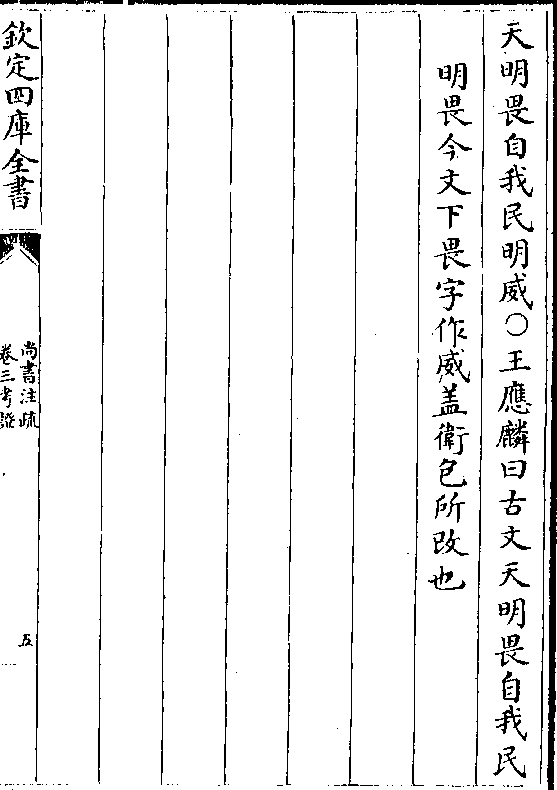 天明畏自我民明威○王應麟曰古文天明畏自我民
明畏今文下畏字作威盖衛包所改也
欽定四庫全書
尚書注疏
卷三考證
五